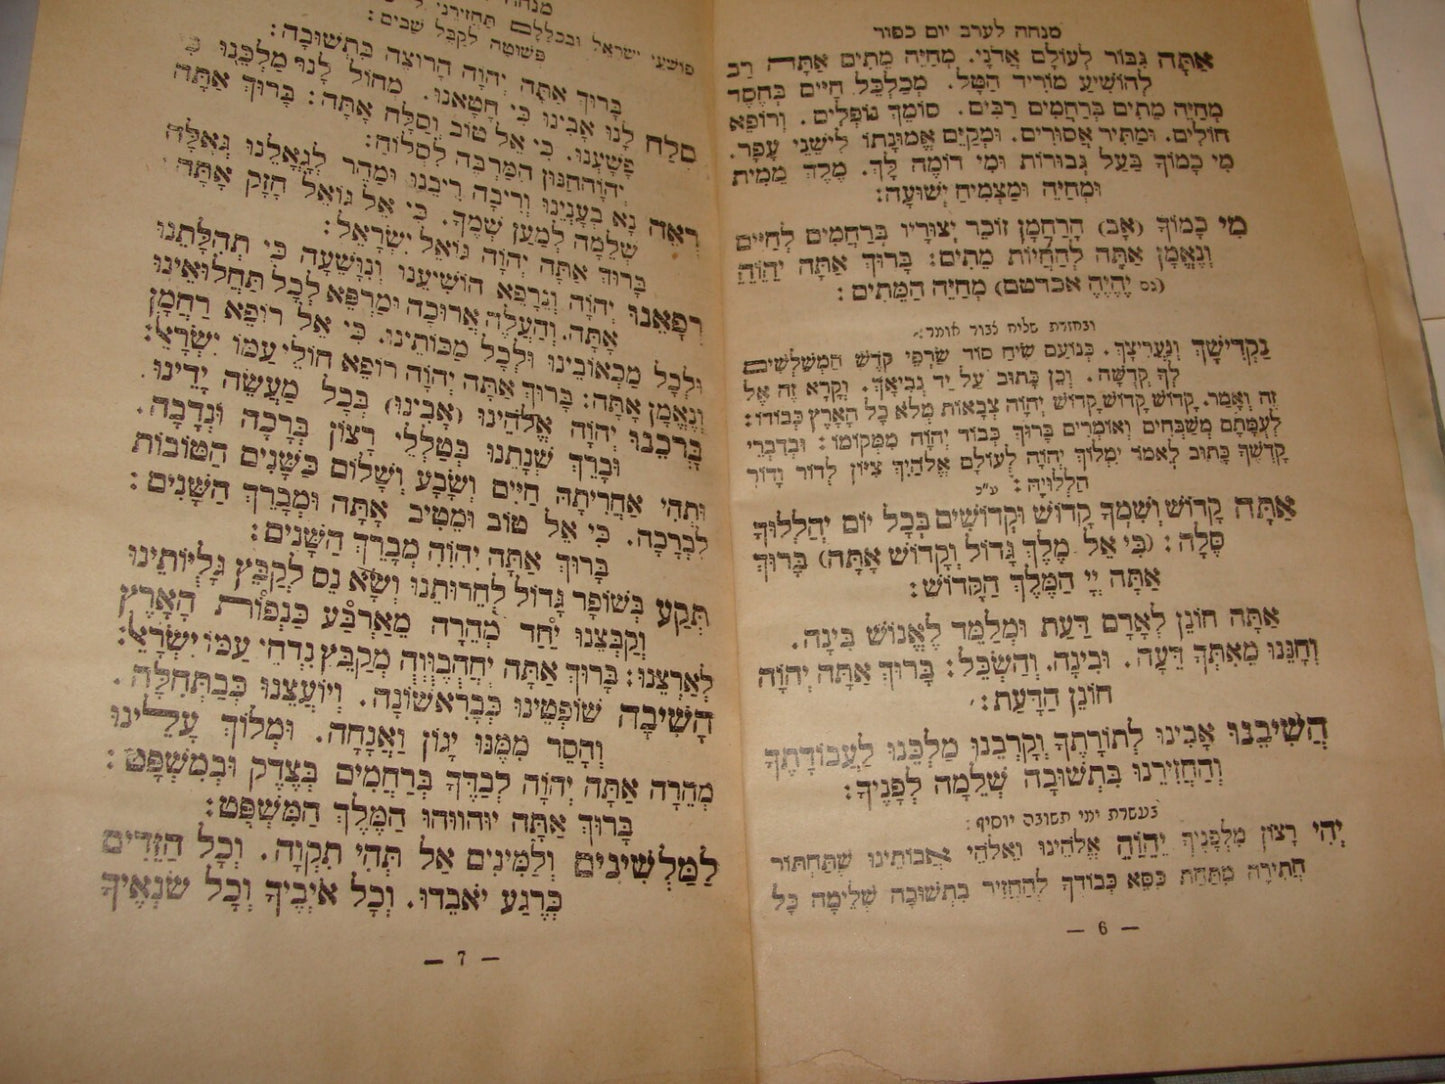 מנחה לערב יום כפור
אַתָּה גִּבּוֹר לְעוֹלָם אֲדֹנָי. מְחַיֵּה מֵתִים אַתָּה רַב
לְהוֹשִׁיעַ מוֹרִיד הַטַּל. מְכַלְכֵּל חַיִּים בְּחֶסֶד
מְחַיֵּה מֵתִים בְּרַחֲמִים רַבִּים. סוֹמֵךְ נוֹפְלִים. וְרוֹפֵא
חוֹלִים. וּמַתִּיר אֲסוּרִים. וּמְקַיֵּם אֱמוּנָתוֹ לִישֵׁנֵי עָפָר.
מִי כָמוֹךָ בַּעַל גְּבוּרוֹת וּמִי דוֹמֶה לָּךְ. מֶלֶךְ מֵמִית
וּמְחַיֶּה וּמַצְמִיחַ יְשׁוּעָה:
מִי כָמוֹךָ (אָב) הָרַחֲמָן זוֹכֵר יְצוּרָיו בְּרַחֲמִים לְחַיִּים
וְנֶאֱמָן אַתָּה לְהַחֲיוֹת מֵתִים: בָּרוּךְ אַתָּה יַהַוַהַ
(נס יֶהֶיֶהֶ אכדטם) מְחַיֵּה הַמֵּתִים:
ובחזרת שליח צבור אומר:
נַקְדִּישָׁךְ וְנַעֲרִיצָךְ. כְּנוֹעַם שִׂיחַ סוֹד שַׂרְפֵי קֹדֶשׁ הַמְשַׁלְּשִׁים
לְךָ קְדֻשָּׁה. וְכֵן כָּתוּב עַל יַד נְבִיאָךְ. וְקָרָא זֶה אֶל
זֶה וְאָמַר. קָדוֹשׁ קָדוֹשׁ קָדוֹשׁ יְהֹוָה צְבָאוֹת מְלֹא כָל הָאָרֶץ כְּבוֹדוֹ:
לְעֻמָּתָם מְשַׁבְּחִים וְאוֹמְרִים בָּרוּךְ כְּבוֹד יְהֹוָה מִמְּקוֹמוֹ: וּבְדִבְרֵי
קָדְשְׁךָ כָּתוּב לֵאמֹר יִמְלוֹךְ יְהֹוָה לְעוֹלָם אֱלֹהַיִךְ צִיּוֹן לְדוֹר וָדוֹר
הַלְלוּיָהּ: ע"כ
אַתָּה קָדוֹשׁ וְשִׁמְךָ קָדוֹשׁ וּקְדוֹשִׁים בְּכָל יוֹם יְהַלְלוּךָ
סֶּלָה: (כִּי אֵל מֶלֶךְ גָּדוֹל וְקָדוֹשׁ אָתָּה) בָּרוּךְ
אַתָּה יְיָ הַמֶּלֶךְ הַקָּדוֹשׁ:
אַתָּה חוֹנֵן לְאָדָם דַּעַת וּמְלַמֵּד לֶאֱנוֹשׁ בִּינָה.
וְחָנֵּנוּ מֵאִתְּךָ דֵּעָה. וּבִינָה. וְהַשְׂכֵּל: בָּרוּךְ אַתָּה יְהֹוָה
חוֹנֵן הַדָּעַת:
הֲשִׁיבֵנוּ אָבִינוּ לְתוֹרָתֶךָ וְקָרְבֵנוּ מַלְכֵּנוּ לַעֲבוֹדָתֶךָ
וְהַחֲזִירֵנוּ בִּתְשׁוּבָה שְׁלֵמָה לְפָנֶיךָ:
בעשרת ימי תשובה יוסיף:
יְהִי רָצוֹן מִלְּפָנֶיךָ יַהַוַהַ אֱלֹהֵינוּ וֵאלֹהֵי אֲבוֹתֵינוּ שֶׁתַּחְתּוֹר
חֲתִירָה מִתַּחַת כִּסֵּא כְּבוֹדֶךָ לְהַחֲזִיר בִּתְשׁוּבָה שְׁלֵימָה כָּל
— 6 —
פּוֹשְׁעֵי יִשְׂרָאֵל וּבִכְלָלָם תַּחֲזִירֵנִי
פְּשׁוּטָה לְקַבֵּל שָׁבִים:
בָּרוּךְ אַתָּה יְהֹוָה הָרוֹצֶה בִּתְשׁוּבָה:
סְלַח לָנוּ אָבִינוּ כִּי חָטָאנוּ. מְחוֹל לָנוּ מַלְכֵּנוּ כִּי
פָשָׁעְנוּ. כִּי אֵל טוֹב וְסַלָּח אָתָּה: בָּרוּךְ אַתָּה
יְהֹוָה חַנּוּן הַמַּרְבֶּה לִסְלוֹחַ:
רְאֵה נָא בְעָנְיֵנוּ וְרִיבָה רִיבֵנוּ וּמַהֵר לְגָאֳלֵנוּ גְּאֻלָּה
שְׁלֵמָה לְמַעַן שְׁמֶךָ. כִּי אֵל גּוֹאֵל חָזָק אָתָּה
בָּרוּךְ אַתָּה יְהֹוָה גּוֹאֵל יִשְׂרָאֵל:
רְפָאֵנוּ יְהֹוָה וְנֵרָפֵא הוֹשִׁיעֵנוּ וְנִוָּשֵׁעָה כִּי תְהִלָּתֵנוּ
אָתָּה. וְהַעֲלֵה אֲרוּכָה וּמַרְפֵּא לְכָל תַּחֲלוּאֵינוּ
וּלְכָל מַכְאוֹבֵינוּ וּלְכָל מַכּוֹתֵינוּ. כִּי אֵל רוֹפֵא רַחֲמָן
וְנֶאֱמָן אָתָּה: בָּרוּךְ אַתָּה יְהֹוָה רוֹפֵא חוֹלֵי עַמּוֹ יִשְׂרָאֵל:
בָּרְכֵנוּ יְהֹוָה אֱלֹהֵינוּ (אָבִינוּ) בְּכָל מַעֲשֵׂה יָדֵינוּ.
וּבָרֵךְ שְׁנָתֵנוּ בְּטַלְלֵי רָצוֹן בְּרָכָה וּנְדָבָה.
וּתְהִי אַחֲרִיתָהּ חַיִּים וְשָׂבָע וְשָׁלוֹם כַּשָּׁנִים הַטּוֹבוֹת
לִבְרָכָה. כִּי אֵל טוֹב וּמֵטִיב אָתָּה וּמְבָרֵךְ הַשָּׁנִים:
בָּרוּךְ אַתָּה יִהִוִהִ מְבָרֵךְ הַשָּׁנִים:
תְּקַע בְּשׁוֹפָר גָּדוֹל לְחֵרוּתֵנוּ וְשָׂא נֵס לְקַבֵּץ גָּלֻיּוֹתֵינוּ
וְקַבְּצֵנוּ יַחַד מְהֵרָה מֵאַרְבַּע כַּנְפוֹת הָאָרֶץ
לְאַרְצֵנוּ: בָּרוּךְ אַתָּה מְקַבֵּץ נִדְחֵי עַמּוֹ יִשְׂרָאֵל:
הָשִׁיבָה שׁוֹפְטֵינוּ כְּבָרִאשׁוֹנָה. וְיוֹעֲצֵנוּ כְּבַתְּחִלָּה.
וְהָסֵר מִמֶּנּוּ יָגוֹן וַאֲנָחָה. וּמְלוֹךְ עָלֵינוּ
מְהֵרָה אַתָּה יְהֹוָה לְבַדְּךָ בְּרַחֲמִים בְּצֶדֶק וּבְמִשְׁפָּט:
בָּרוּךְ אַתָּה יוּהוּווּהוּ הַמֶּלֶךְ הַמִּשְׁפָּט:
לַמַּלְשִׁינִים וְלַמִּינִים אַל תְּהִי תִקְוָה. וְכָל הַזֵּדִים
כְּרֶגַע יֹאבֵדוּ. וְכָל אֹיְבֶיךָ וְכָל שֹׂנְאֶיךָ
— 7 —